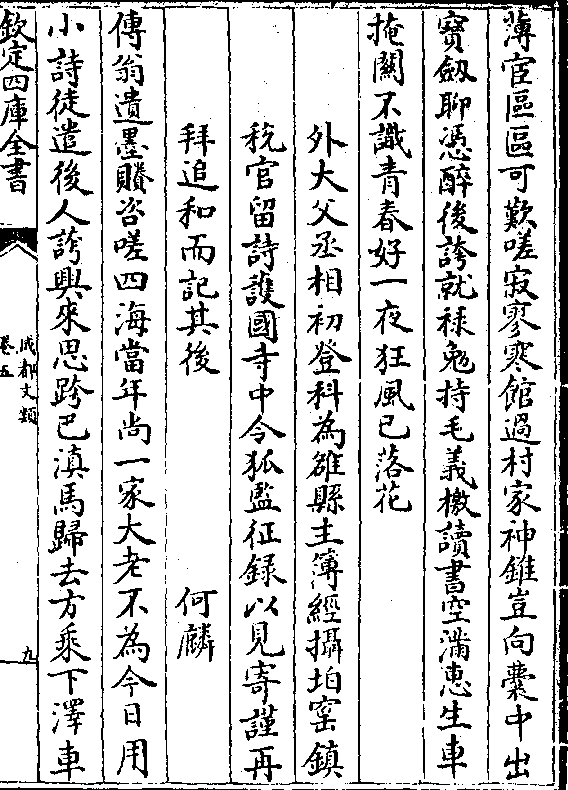 薄宦區區可歎嗟寂寥寒館過村家神錐豈向囊中出
寶劔聊憑醉後誇就禄勉持毛義檄讀書空滿惠生車
掩關不識青春好一夜狂風已落花
外大父丞相初登科為雒縣主簿經攝垍窑鎮
税官留詩護國寺中令狐監征録以見寄謹再
拜追和而記其後
何麟
傳翁遺墨賸咨嗟四海當年尚一家大老不為今日用
小詩徒遣後人誇興來思跨巴滇馬歸去方乘下澤車
欽定四庫全書
成都文類
卷五
九